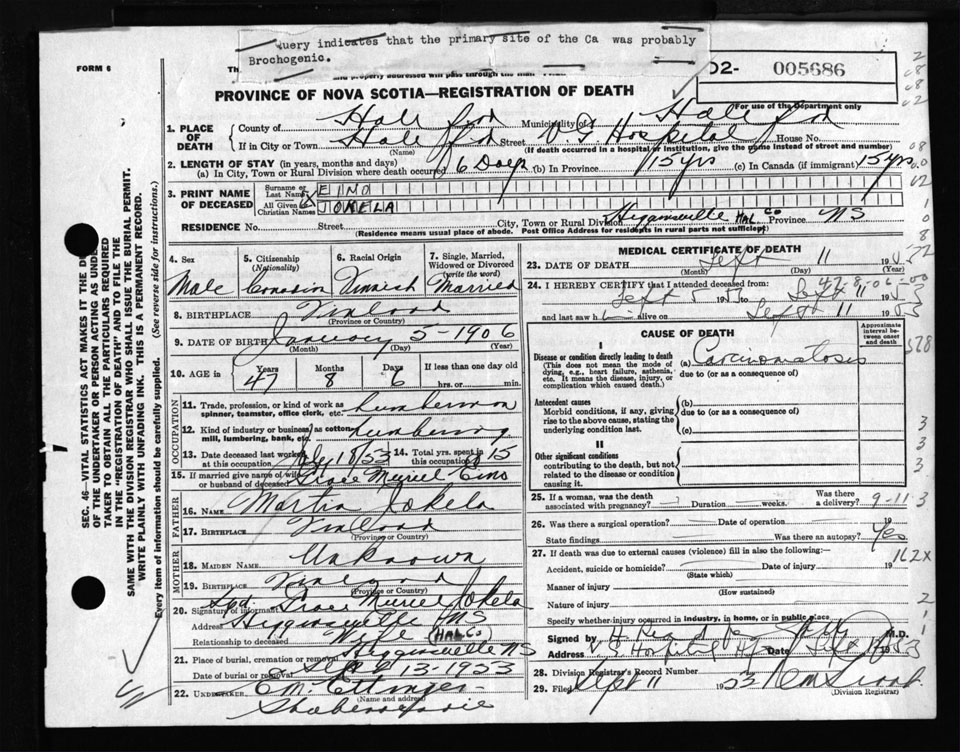 Query indicates that the primary site of the Ca was probably
Brochogenic.
FORM 6
and properly addressed will pass through the mail
02- 005686
(For use of the Department only
PROVINCE OF NOVA SCOTIA—REGISTRATION OF DEATH
1. PLACE OF DEATH County of Halifax Municipality of Halifax
If in City or Town Halifax Street V.G. Hospital House No.
(Name) (If death occurred in a hospital or institution, give the name instead of street and number)
2. LENGTH OF STAY (in years, months and days)
(a) In City, Town or Rural Division where death occurred 6 Days (b) In Province 15 yrs (c) In Canada (if immigrant) 15 yrs
3. PRINT NAME OF DECEASED Surname or Last Name EINO
All Given or Christian Names JOKELA
RESIDENCE No. Street City, Town or Rural Division Higginsville HAL Co Province NS
(Residence means usual place of abode. Post Office Address for residents in rural parts not sufficient)
4. Sex Male
5. Citizenship (Nationality) Canadian
6. Racial Origin Finnish
7. Single, Married, Widowed or Divorced (write the word) Married
8. BIRTHPLACE Finland
(Province or Country)
9. DATE OF BIRTH January 5-1906
(Month) (Day) (Year)
10. AGE Years 47 Months 8 Days 6 If less than one day old
hrs. or min.
OCCUPATION
11. Trade, profession, or kind of work as spinner, teamster, office clerk, etc. Lumberman
12. Kind of industry or business as cotton mill, lumbering, bank, etc. Lumbering
13. Date deceased last worked at this occupation 18/53 14. Total yrs. spent in this occupation 15
15. If married give name of wife or husband of deceased Grace Muriel Eino
FATHER
16. NAME Martin Jokela
17. BIRTHPLACE Finland
(Province or Country)
MOTHER
18. MAIDEN NAME Unknown
19. BIRTHPLACE Finland
(Province or Country)
20. Signature of informant Sgd. Grace Muriel Jokela
Address Higginsville NS
Relationship to deceased Wife HAL Co
21. Place of burial, cremation or removal Higginsville NS
Date of burial or removal Sept 13-1953
22. UNDERTAKER E Mc Ettinger
(Name and address)
Shubenacadie
MEDICAL CERTIFICATE OF DEATH
23. DATE OF DEATH Sept 11 1953
(Month) (Day) (Year)
24. I HEREBY CERTIFY that I attended deceased from:
Sept 5 1953 Sept 11 1953
and last saw h alive on Sept 11 1953
CAUSE OF DEATH
Approximate interval between onset and death
I
Disease or condition directly leading to death (a) Carcinomatosis
(This does not mean the mode of dying, e.g., heart failure, asthenia, etc. It means the disease, injury, or complication which caused death.) due to (or as a consequence of)
Antecedent causes (b)
Morbid conditions, if any, giving rise to the above cause, stating the underlying condition last. due to (or as a consequence of)
(c)
II
Other significant conditions
contributing to the death, but not related to the disease or condition causing it.
25. If a woman, was the death associated with pregnancy? Duration weeks. Was there a delivery? 9-11 3
26. Was there a surgical operation? Date of operation 19
State findings Was there an autopsy? Yes
27. If death was due to external causes (violence) fill in also the following:—
Accident, suicide or homicide? Date of injury 19 162X
(State which)
Manner of injury
(How sustained)
Nature of injury
Specify whether injury occurred in industry, in home, or in public place
Signed by M.D.
Address V.G. Hospital Hfx Date Sept 1953
28. Division Registrar's Record Number
29. Filed Sept 11 1953
(Division Registrar)
SEC. 46—VITAL STATISTICS ACT MAKES IT THE DU
OF THE UNDERTAKER OR PERSON ACTING AS UNDE
TAKER TO OBTAIN ALL THE PARTICULARS REQUIRED
IN THE "REGISTRATION OF DEATH" AND TO FILE THE
SAME WITH THE DIVISION REGISTRAR WHO SHALL ISSUE THE BURIAL PERMIT.
WRITE PLAINLY WITH UNFADING INK. THIS IS A PERMANENT RECORD.
Every item of information should be carefully supplied. (See reverse side for instructions.)